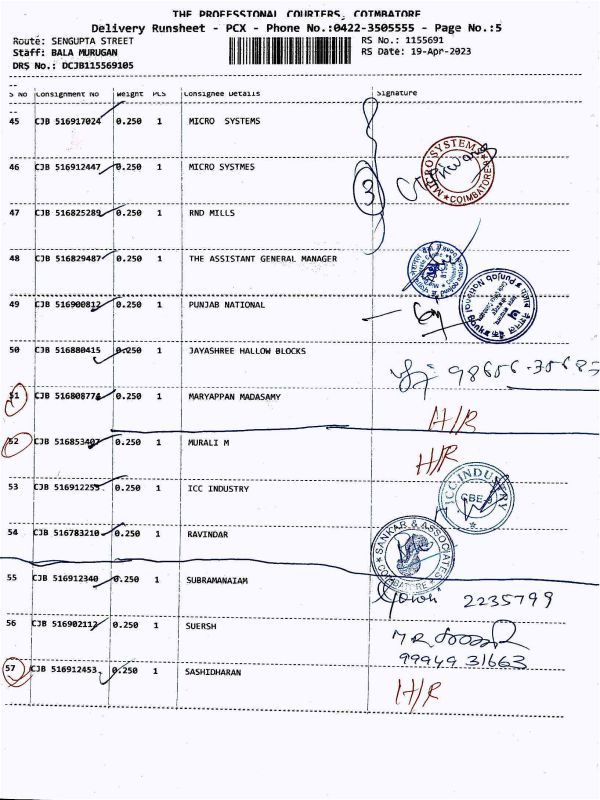 THE PROFESSIONAL COURIERS, COIMBATORE
Delivery Runsheet - PCX - Phone No.:0422-3505555 - Page No.:5
Route: SENGUPTA STREET RS No.: 1155691
Staff: BALA MURUGAN RS Date: 19-Apr-2023
DRS No.: DCJB115569105
S NO Consignment No Weight PCS Consignee Details Signature
45 CJB 516917024 0.250 1 MICRO SYSTEMS
MICROSYSTEMS COIMBATORE
46 CJB 516912447 0.250 1 MICRO SYSTMES
3
47 CJB 516825289 0.250 1 RND MILLS
48 CJB 516829487 0.250 1 THE ASSISTANT GENERAL MANAGER
49 CJB 516900812 0.250 1 PUNJAB NATIONAL
Punjab National Bank
50 CJB 516880415 0.250 1 JAYASHREE HALLOW BLOCKS
51 CJB 516808774 0.250 1 MARYAPPAN MADASAMY
H/R
52 CJB 516853407 0.250 1 MURALI M
H/R
53 CJB 516912255 0.250 1 ICC INDUSTRY
ICC INDUSTRY
54 CJB 516783210 0.250 1 RAVINDAR
SANKAR & ASSOCIATES COIMBATORE
55 CJB 516912340 0.250 1 SUBRAMANAIAM
2235799
56 CJB 516902112 0.250 1 SUERSH
99949 31663
57 CJB 516912453 0.250 1 SASHIDHARAN
H/R